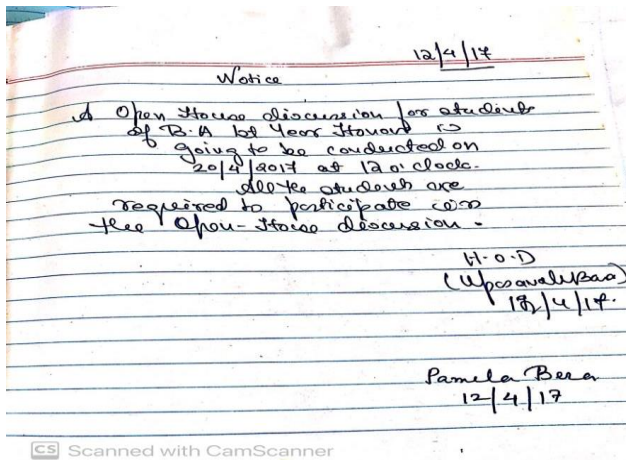 12/4/17
Notice
A Open House discussion for students
of B.A 1st Year Honours is
going to be conducted on
20/4/2017 at 12 o'clock.
All the students are
required to participate in
the Open-House discussion.
H.O.D
12/4/17.
Pamela Bera
12/4/17
CS Scanned with CamScanner